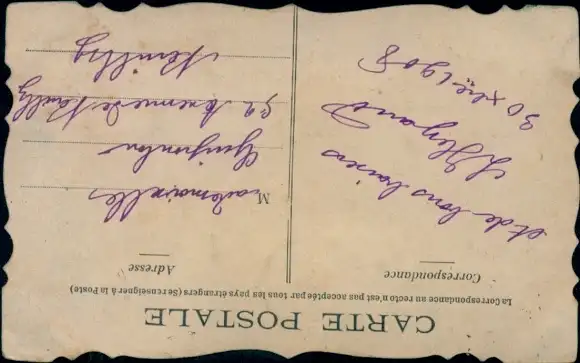 CARTE POSTALE
La Correspondance au recto n'est pas acceptée par tous les pays étrangers (Se renseigner à la Poste)
Correspondance
et de bons baisers
30 Xbre 1908
Adresse
Mademoiselle
92 Avenue de Neuilly
Neuilly